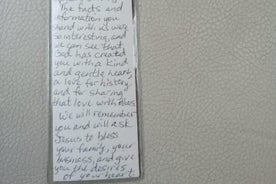 The facts and
information you
shared with us were
so interesting, and
we can see that
God has created
you with a kind
and gentle heart,
a love for history
and for sharing
that love with others.
We will remember
you and will ask
Jesus to bless
your family, your
business, and give
you the desires
of your heart